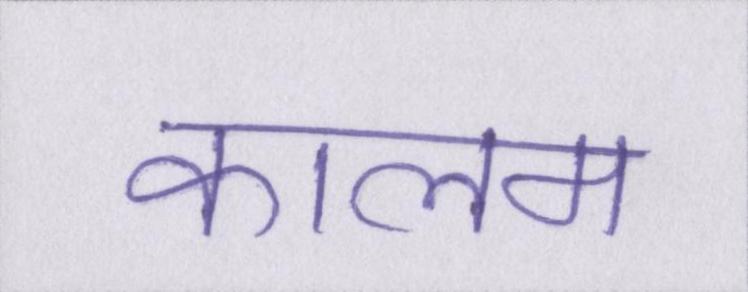 कालम